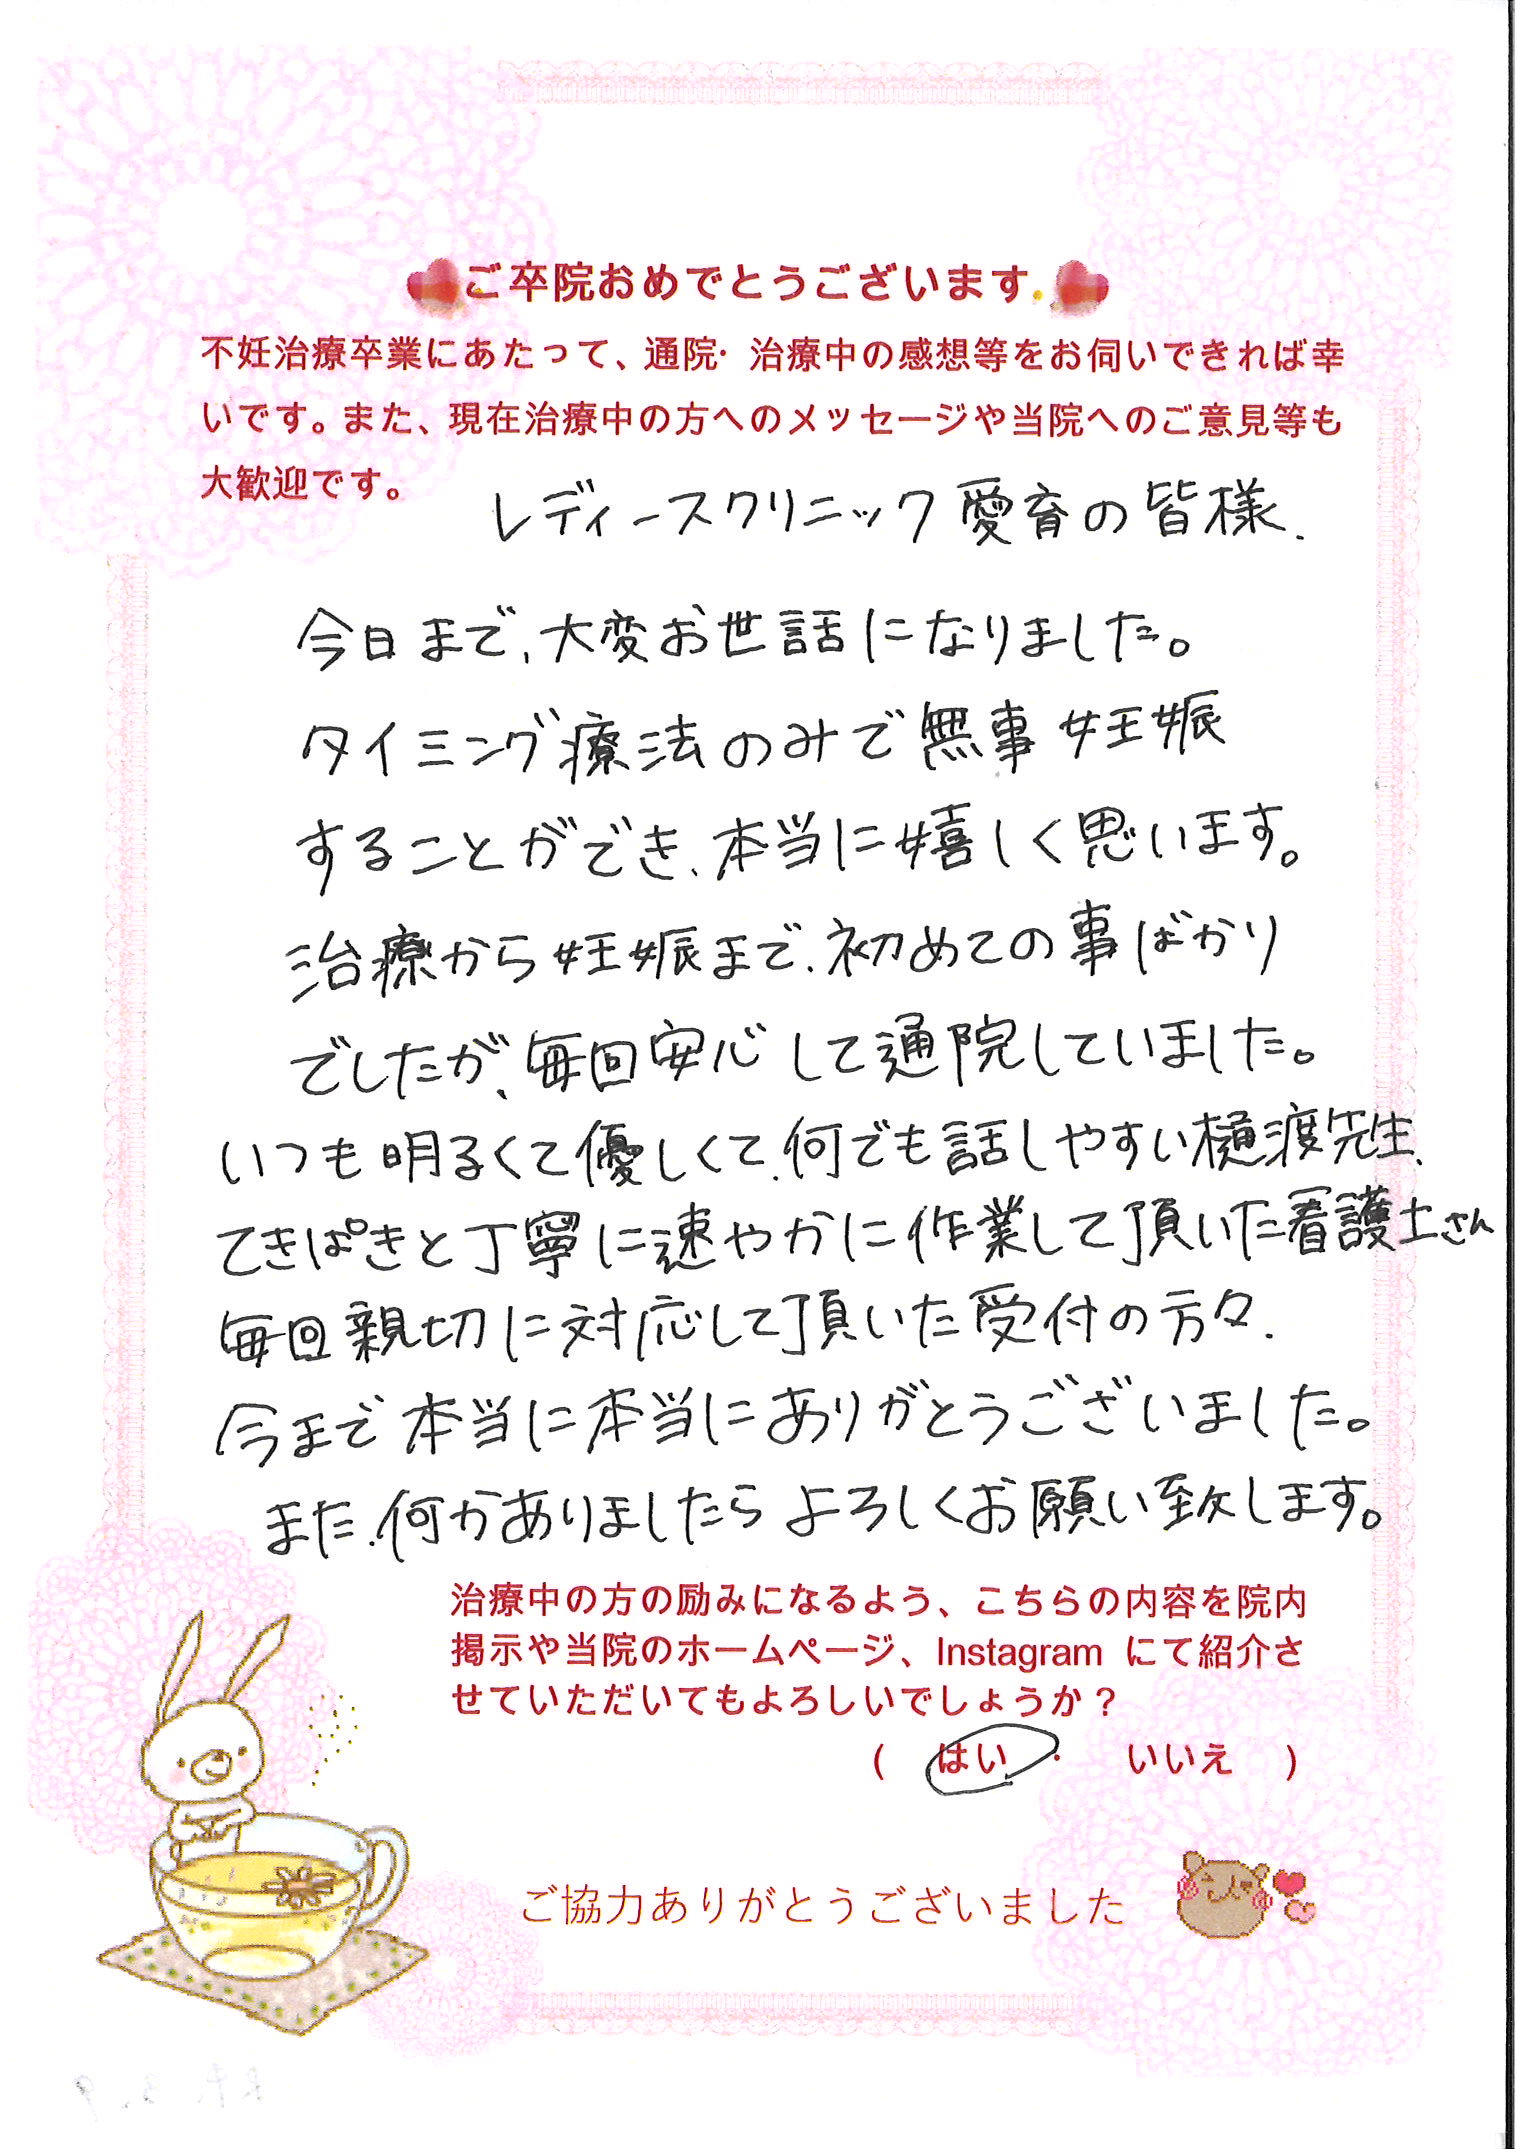 ご卒院おめでとうございます。
不妊治療卒業にあたって、通院・治療中の感想等をお伺いできれば幸
いです。また、現在治療中の方へのメッセージや当院へのご意見等も
大歓迎です。
レディースクリニック愛育の皆様.
今日まで、大変お世話になりました。
タイミング療法のみで無事妊娠
することができ、本当に嬉しく思います。
治療から妊娠まで、初めての事ばかり
でしたが、毎回安心して通院していました。
いつも明るくて優しくて、何でも話しやすい樋渡先生、
てきぱきと丁寧に速やかに作業して頂いた看護士さん
毎回親切に対応して頂いた受付の方々、
今まで本当に本当にありがとうございました。
また、何かありましたらよろしくお願い致します。
治療中の方の励みになるよう、こちらの内容を院内
掲示や当院のホームページ、Instagram にて紹介さ
せていただいてもよろしいでしょうか？
( はい ・ いいえ )
ご協力ありがとうございました